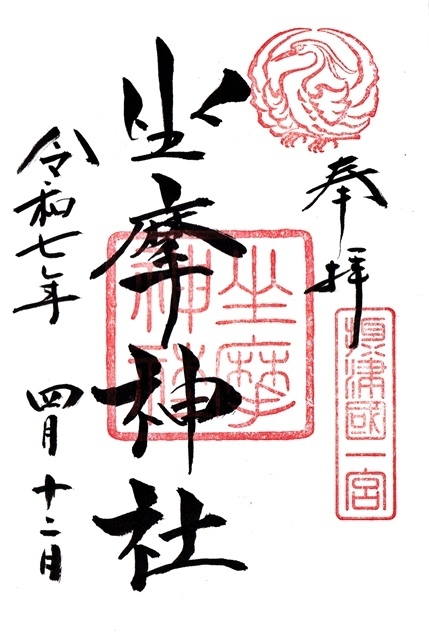 奉拝
摂津國一宮
坐摩神社
坐摩
神社
令和七年 四月十二日